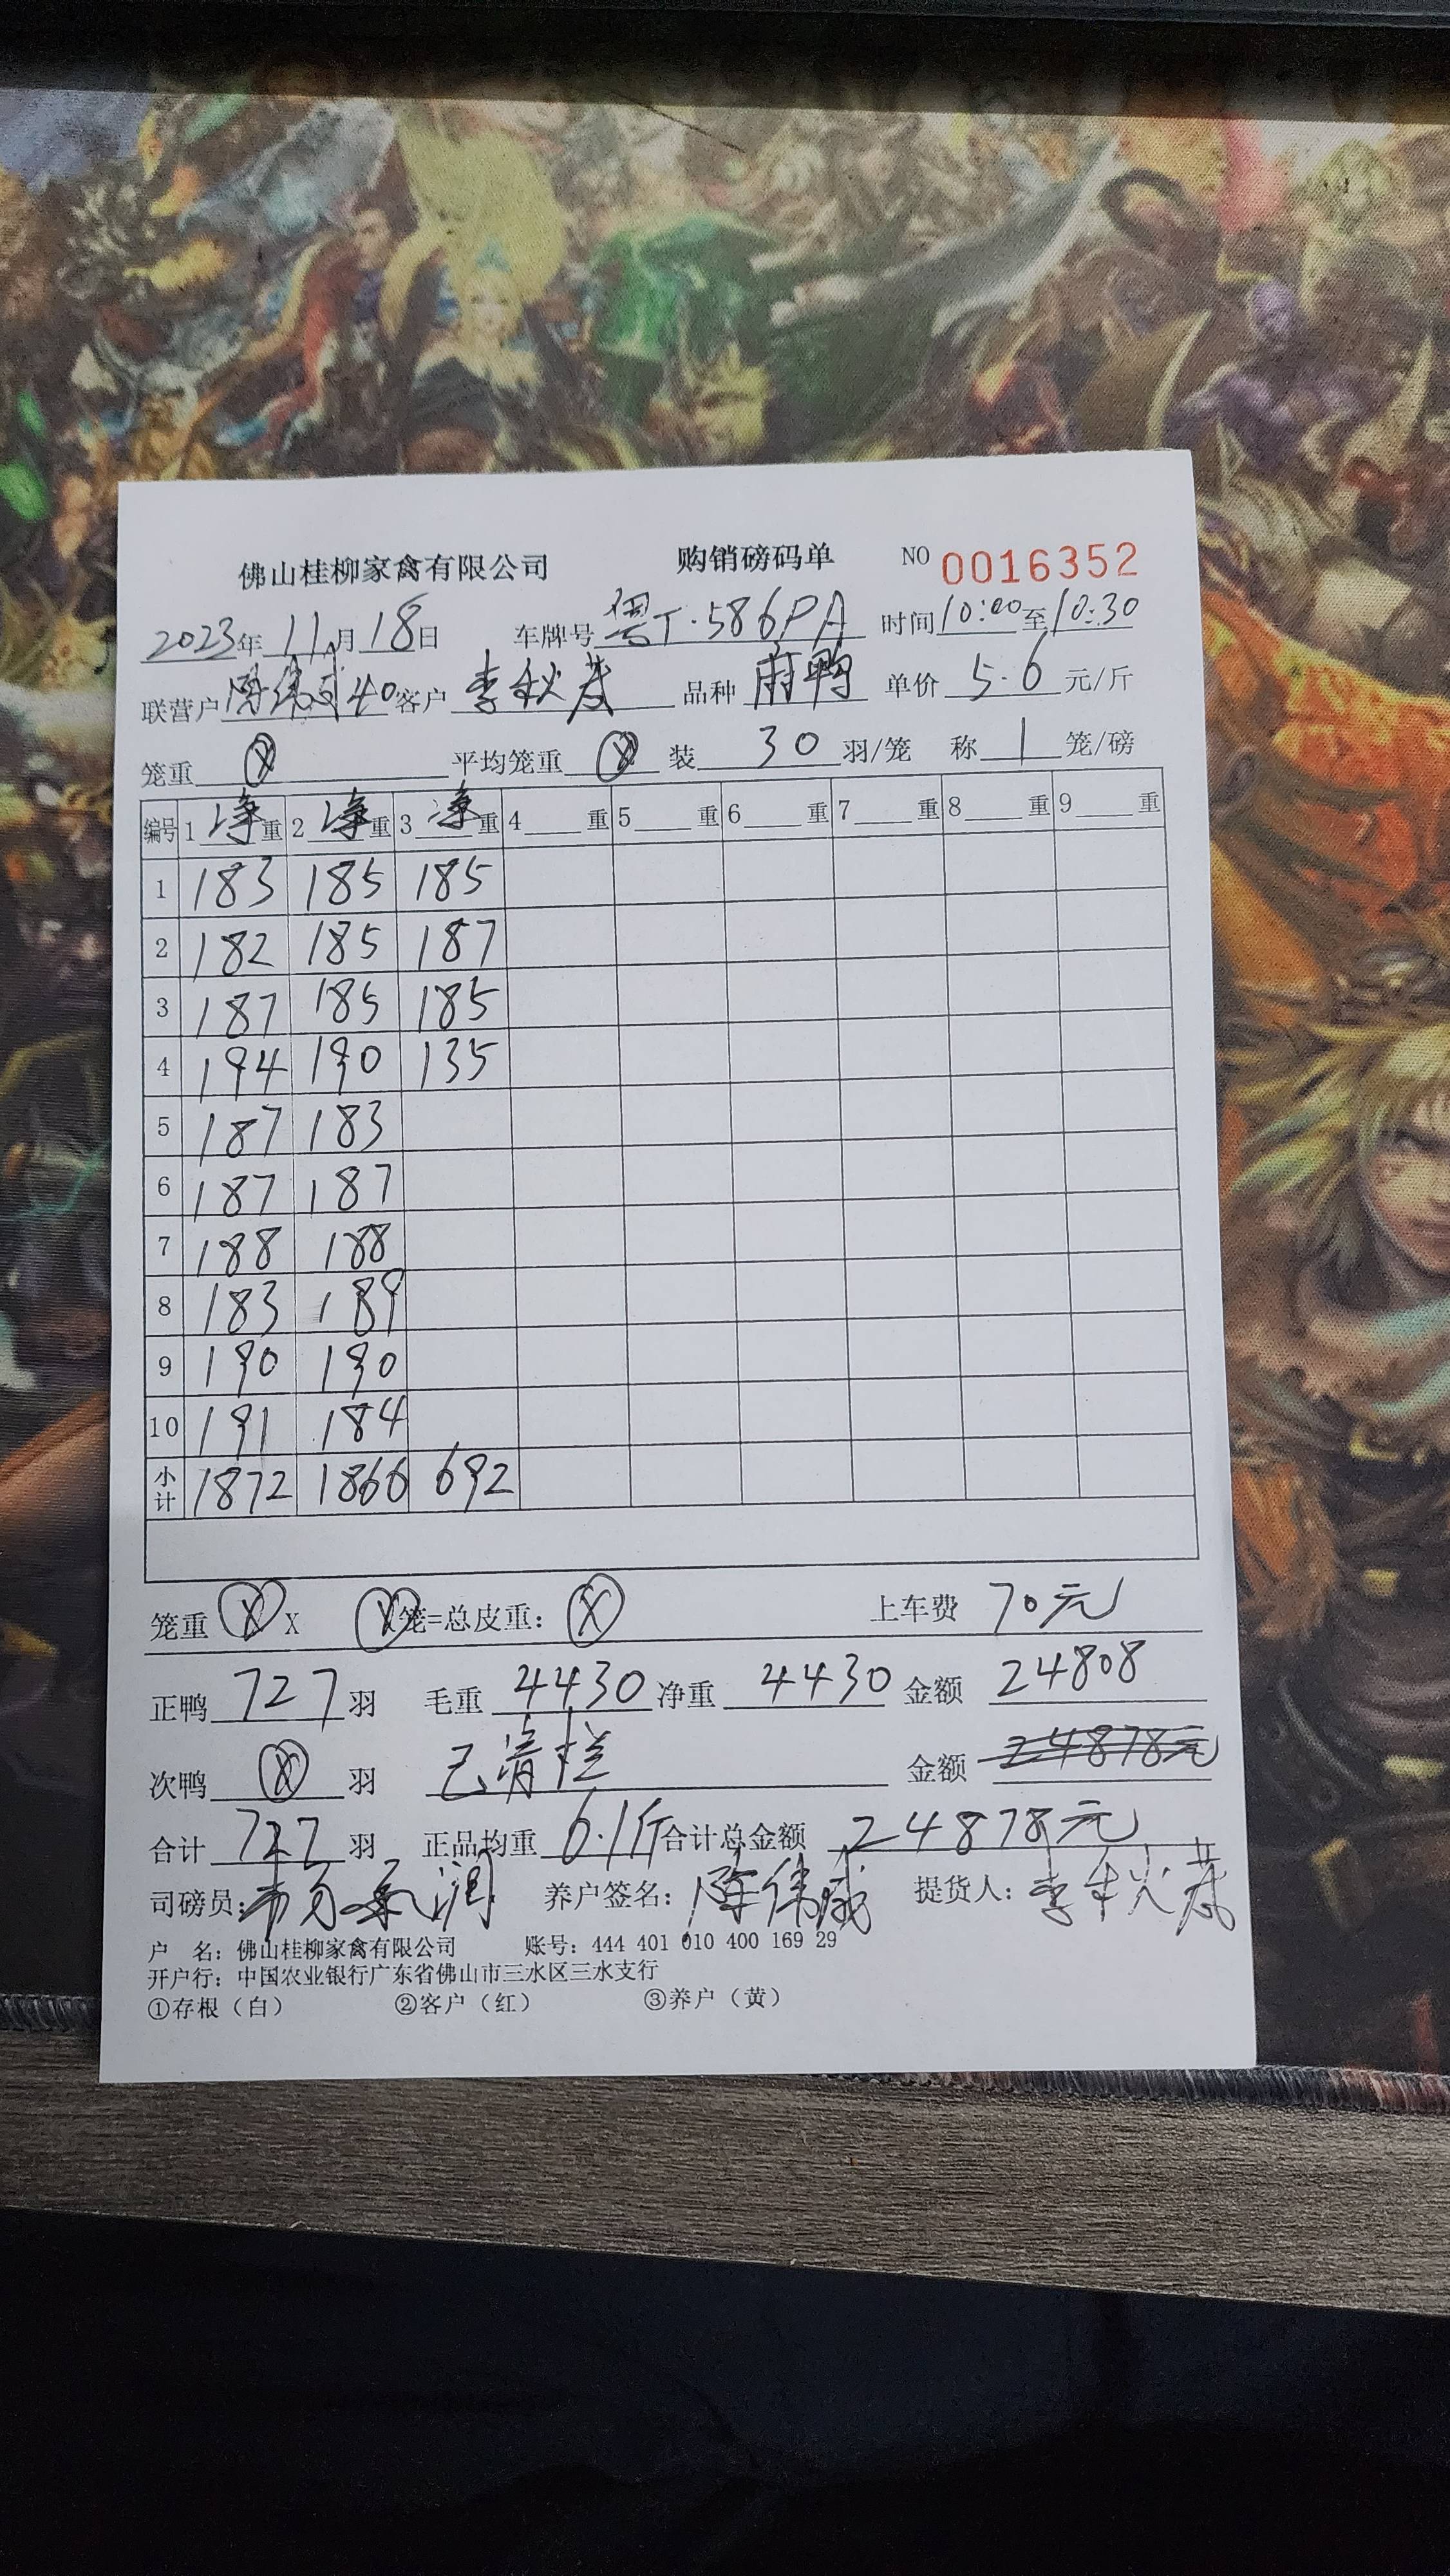 佛山桂柳家禽有限公司 购销磅码单 NO 0016352
2023年 11月 18日 车牌号 粤T·586PA 时间 10:00 至 10:30
联营户 陈伟威40 客户 李秋茂 品种 麻鸭 单价 5.6 元/斤
笼重 平均笼重 装 30 羽/笼 称 1 笼/磅
编号 1 净重 2 净重 3 净重 4 重 5 重 6 重 7 重 8 重 9 重
1 183 185 185
2 182 185 187
3 187 185 185
4 194 190 135
5 187 183
6 187 187
7 188 188
8 183 189
9 190 190
10 191 184
小计 1872 1866 692
笼重 X 笼=总皮重: 上车费 70元
正鸭 727 羽 毛重 4430 净重 4430 金额 24808
次鸭 羽 已清栏 金额 24878元
合计 727 羽 正品均重 6.1斤 合计总金额 24878元
司磅员: 养户签名: 陈伟威 提货人: 李秋茂
户 名: 佛山桂柳家禽有限公司 账号: 444 401 010 400 169 29
开户行: 中国农业银行广东省佛山市三水区三水支行
①存根（白） ②客户（红） ③养户（黄）